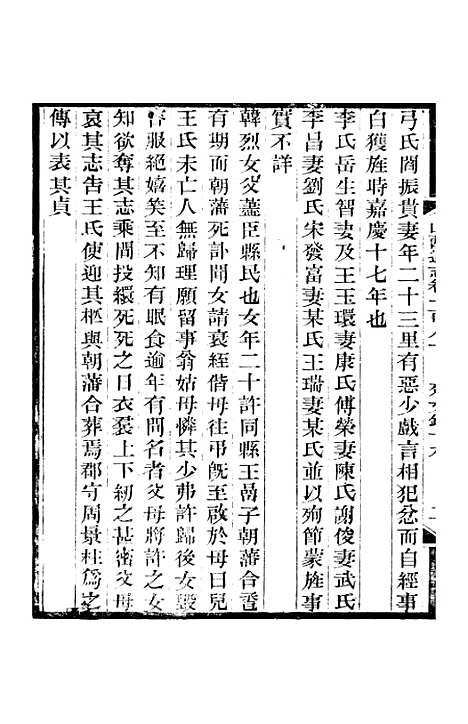 弓氏閻振貴妻年二十三里有惡少戲言相犯忿而自經事
白獲旌時嘉慶十七年也
李氏岳生智妻及王玉環妻康氏傅榮妻陳氏謝俊妻武氏
李昌妻劉氏宋發富妻某氏王瑞妻某氏並以殉節蒙旌事
實不詳
韓烈女父藎臣縣民也女年二十許同縣王暠子朝藩合巹
有期而朝藩死訃聞女請衰絰偕母往弔旣至啟於母曰兒
王氏未亡人無歸理願留事翁姑母憐其少弗許歸後女毀
容服絶嬉笑至不知有眠食逾年有問名者父母將許之女
知欲奪其志乘閒投繯死死之日衣裂上下紉之甚密父母
哀其志告王氏使迎其柩與朝藩合葬焉郡守周景柱爲之
傳以表其貞